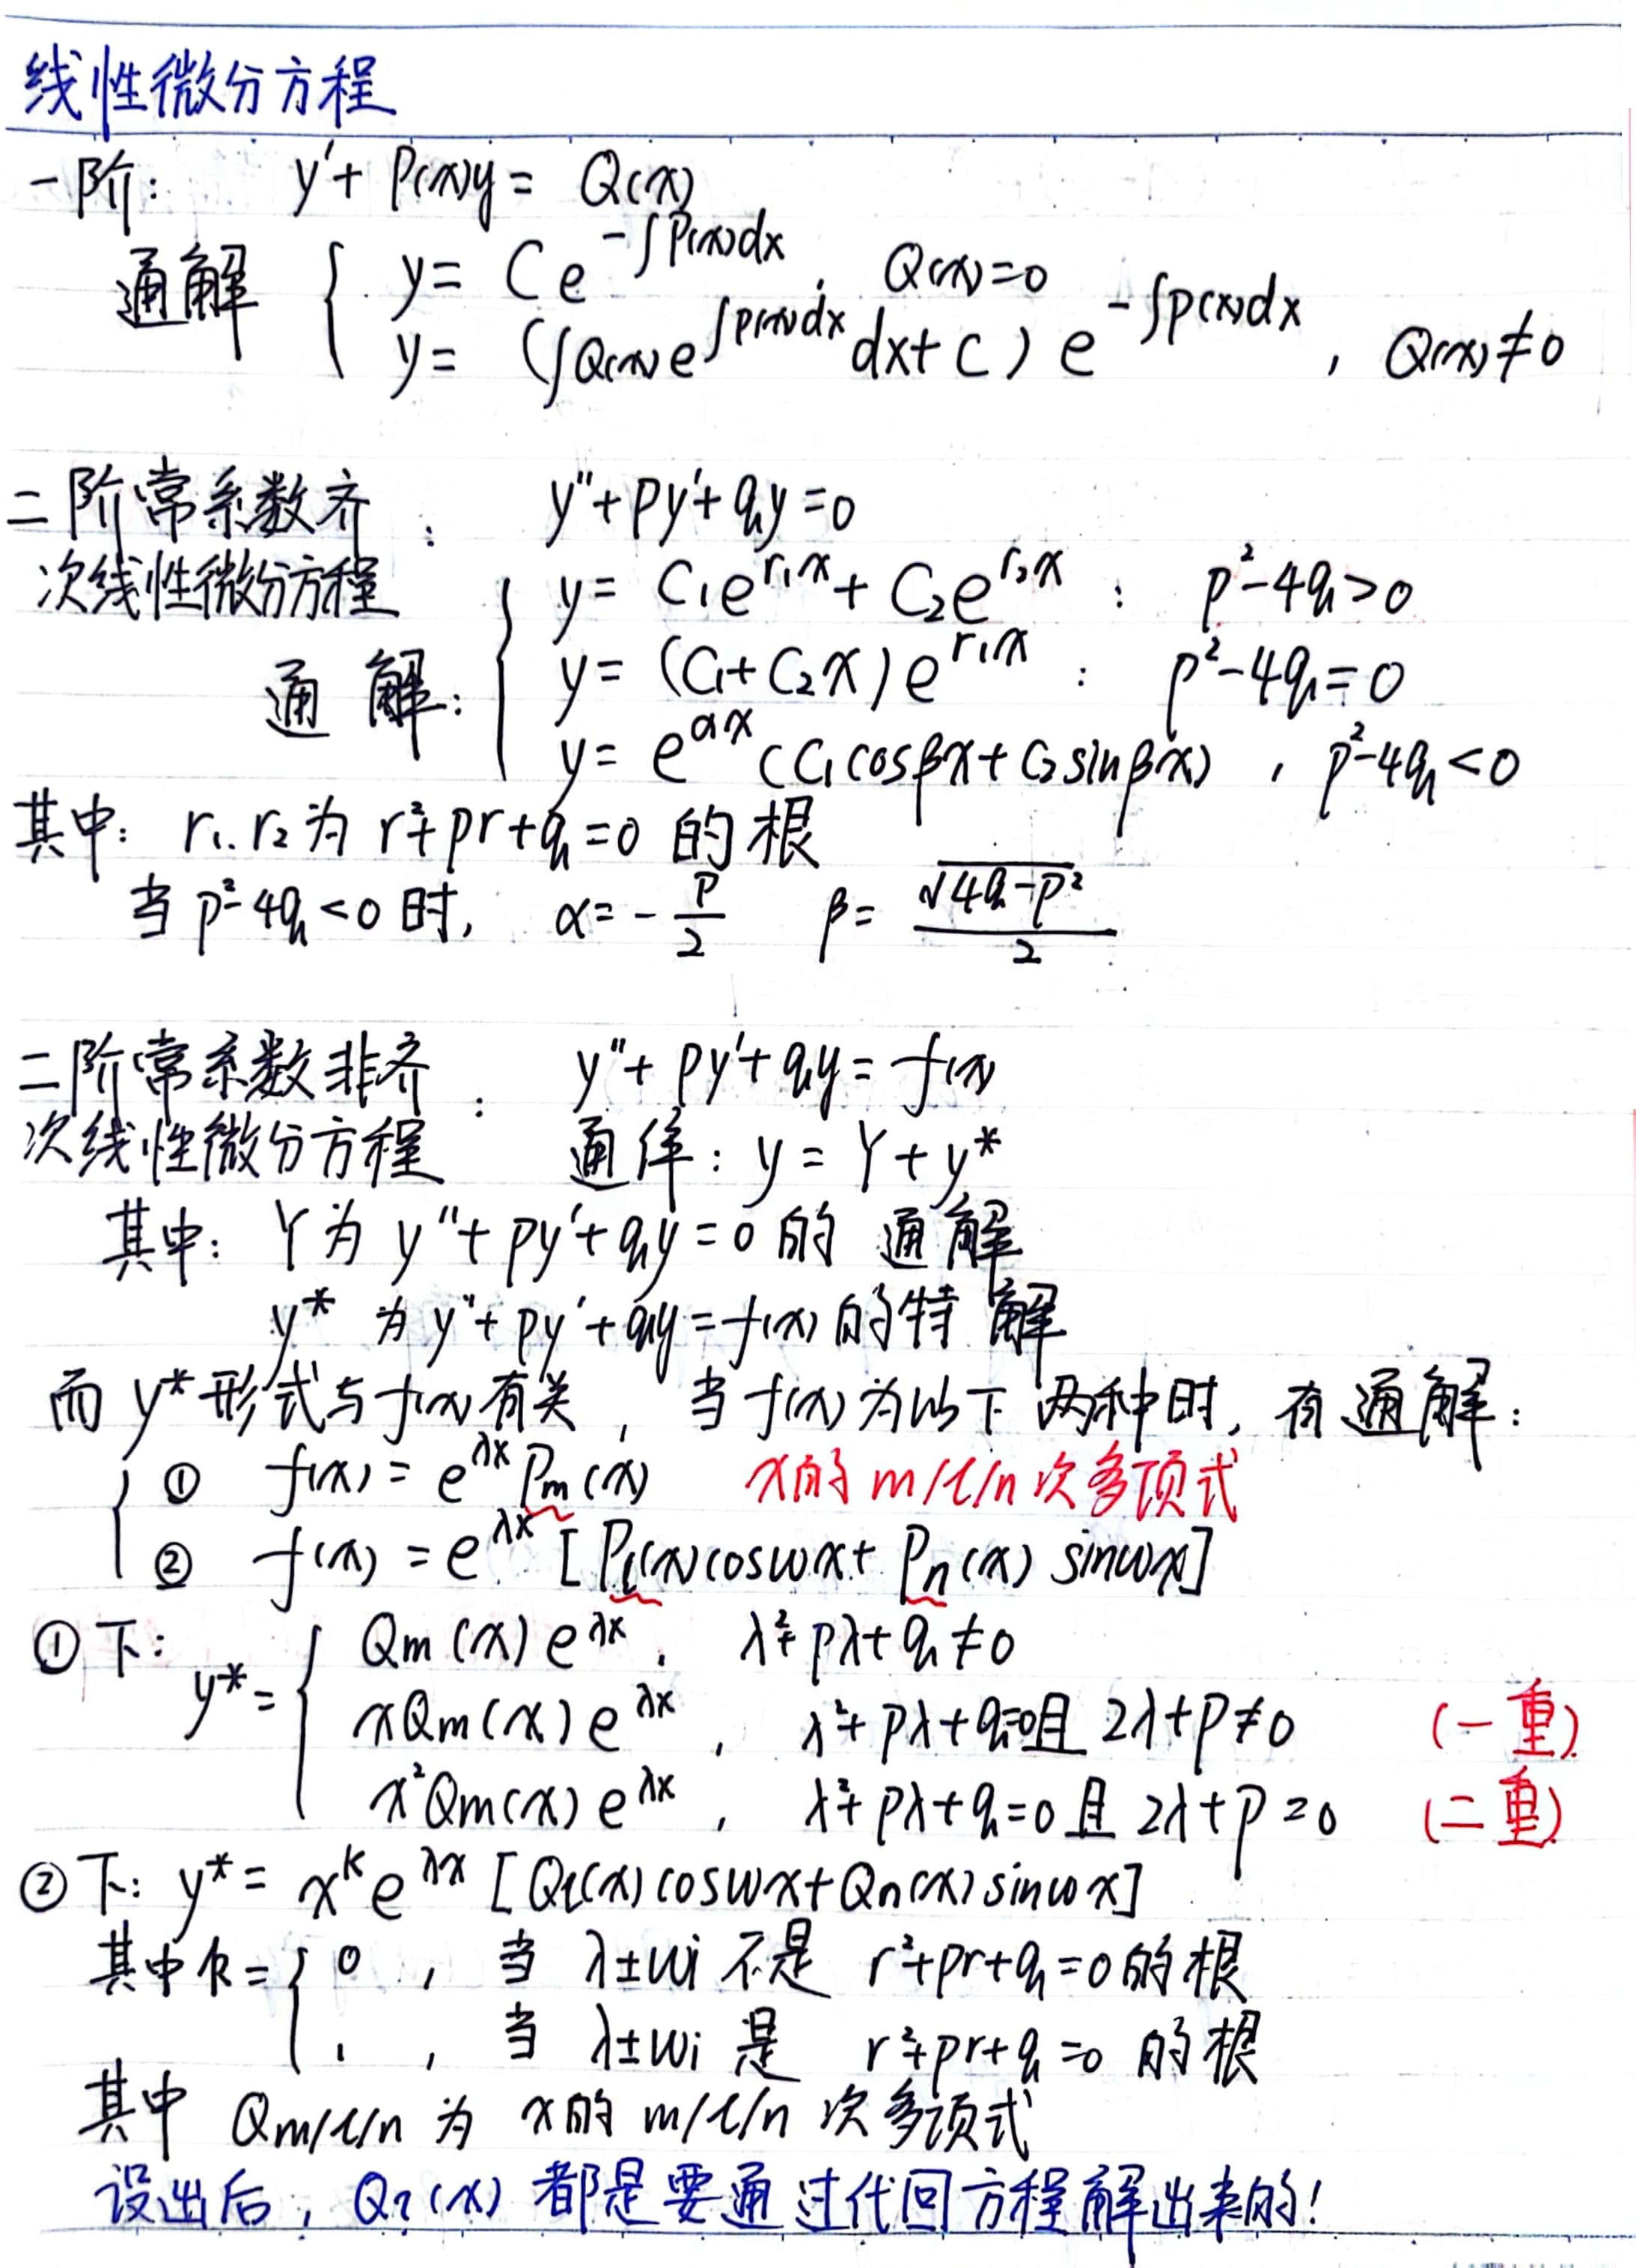 线性微分方程
一阶: y'+P(x)y=Q(x)
通解 { y=Ce^{-∫P(x)dx}, Q(x)=0
y=(∫Q(x)e^{∫P(x)dx}dx+C)e^{-∫P(x)dx}, Q(x)≠0
二阶常系数齐
次线性微分方程: y''+py'+qy=0
通解: { y=C₁e^{r₁x}+C₂e^{r₂x}: p²-4q>0
y=(C₁+C₂x)e^{r₁x}: p²-4q=0
y=e^{αx}(C₁cosβx+C₂sinβx), p²-4q<0
其中: r₁.r₂为 r²+pr+q=0 的根
当 p²-4q<0 时, α=-p/2 β=√(4q-p²)/2
二阶常系数非齐
次线性微分方程: y''+py'+qy=f(x)
通解: y=Y+y*
其中: Y为 y''+py'+qy=0 的通解
y* 为 y''+py'+qy=f(x) 的特解
而 y* 形式与f(x)有关, 当 f(x) 为以下两种时, 有通解:
{ ① f(x)=e^{λx}Pm(x) x的 m/l/n 次多项式
② f(x)=e^{λx}[Pl(x)cosωx+Pn(x)sinωx]
①下: y*= { Qm(x)e^{λx}, λ²+pλ+q≠0
xQm(x)e^{λx}, λ²+pλ+q=0且 2λ+p≠0 (一重)
x²Qm(x)e^{λx}, λ²+pλ+q=0且 2λ+p=0 (二重)
②下: y*=x^k e^{λx}[Ql(x)cosωx+Qn(x)sinωx]
其中k= { 0, 当 λ±ωi 不是 r²+pr+q=0的根
1, 当 λ±ωi 是 r²+pr+q=0 的根
其中 Qm/l/n 为 x的 m/l/n 次多项式
设出后, Q?(x) 都是要通过代回方程解出来的!